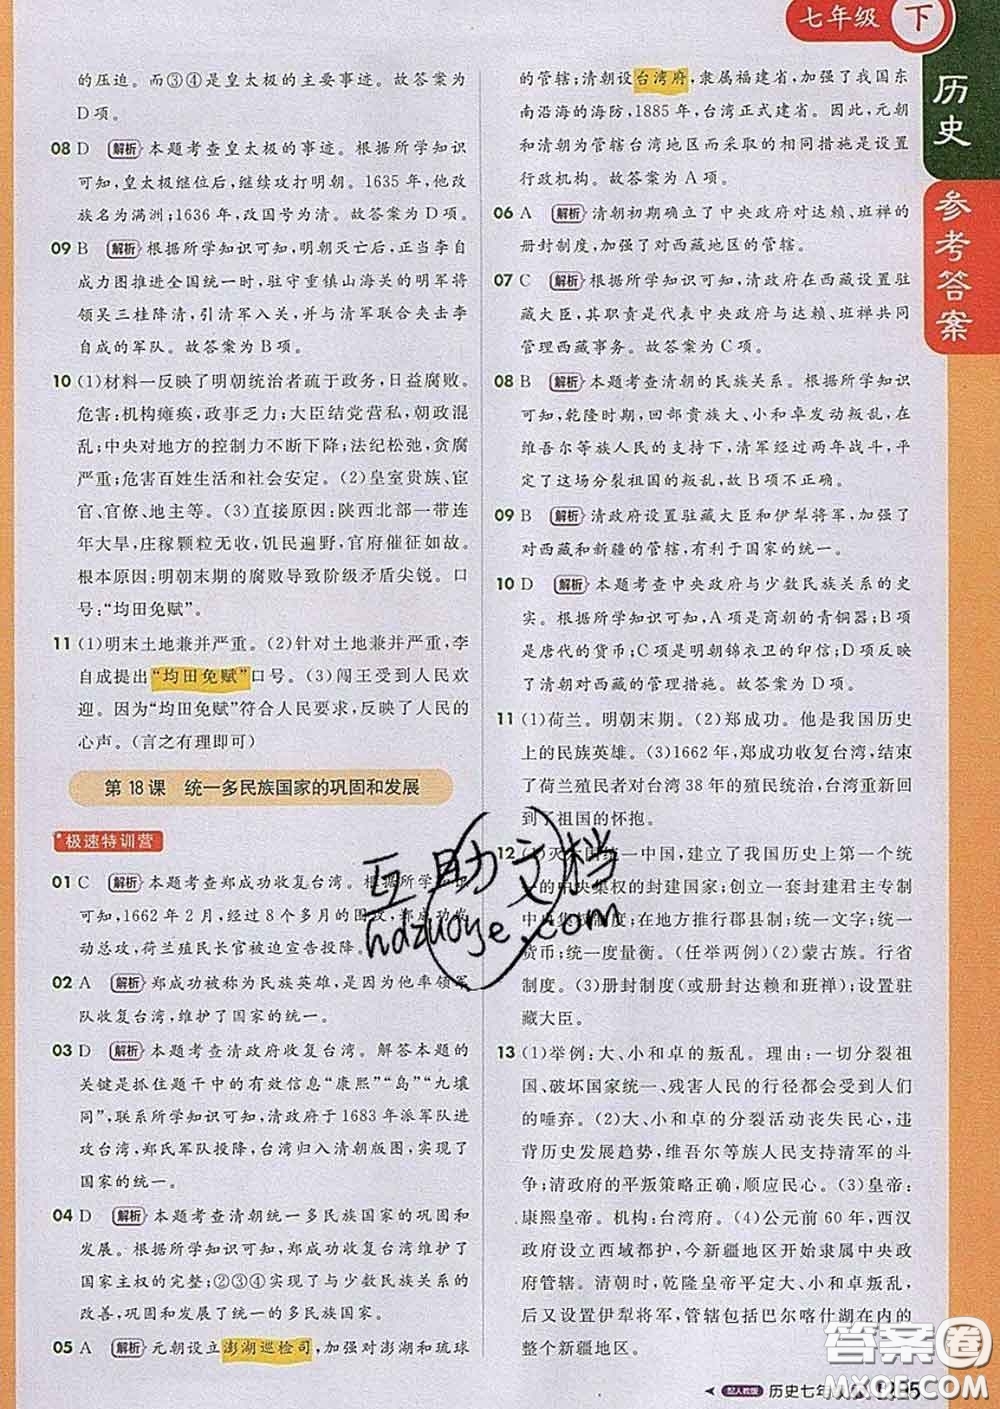 七年级 下
历史
参考答案
的压迫。而③④是皇太极的主要事迹。故答案为
D项。
08 D 解析 本题考查皇太极的事迹。根据所学知识
可知，皇太极继位后，继续攻打明朝。1635年，他改
族名为满洲；1636年，改国号为清。故答案为D项。
09 B 解析 根据所学知识可知，明朝灭亡后，正当李自
成力图推进全国统一时，驻守重镇山海关的明军将
领吴三桂降清，引清军入关，并与清军联合夹击李
自成的军队。故答案为B项。
10 (1)材料一反映了明朝统治者疏于政务，日益腐败。
危害：机构瘫痪，政事乏力；大臣结党营私，朝政混
乱；中央对地方的控制力不断下降；法纪松弛，贪腐
严重；危害百姓生活和社会安定。(2)皇室贵族、宦
官、官僚、地主等。(3)直接原因：陕西北部一带连
年大旱，庄稼颗粒无收，饥民遍野，官府催征如故。
根本原因：明朝末期的腐败导致阶级矛盾尖锐。口
号：“均田免赋”。
11 (1)明末土地兼并严重。(2)针对土地兼并严重，李
自成提出“均田免赋”口号。(3)闯王受到人民欢
迎。因为“均田免赋”符合人民要求，反映了人民的
心声。(言之有理即可)
第18课 统一多民族国家的巩固和发展
极速特训营
01 C 解析 本题考查郑成功收复台湾。根据所学知识
可知，1662年2月，经过8个多月的围攻，郑成功发
动总攻，荷兰殖民长官被迫宣告投降。
02 A 解析 郑成功被称为民族英雄，是因为他率领军
队收复台湾，维护了国家的统一。
03 D 解析 本题考查清政府收复台湾。解答本题的
关键是抓住题干中的有效信息“康熙”“岛”“九壤
同”，联系所学知识可知，清政府于1683年派军队进
攻台湾，郑氏军队投降，台湾归入清朝版图，实现了
国家的统一。
04 D 解析 本题考查清朝统一多民族国家的巩固和
发展。根据所学知识可知，郑成功收复台湾维护了
国家主权的完整；②③④实现了与少数民族关系的
改善，巩固和发展了统一的多民族国家。
05 A 解析 元朝设立澎湖巡检司，加强对澎湖和琉球
的管辖；清朝设台湾府，隶属福建省，加强了我国东
南沿海的海防，1885年，台湾正式建省。因此，元朝
和清朝为管辖台湾地区而采取的相同措施是设置
行政机构。故答案为A项。
06 A 解析 清朝初期确立了中央政府对达赖、班禅的
册封制度，加强了对西藏地区的管辖。
07 C 解析 根据所学知识可知，清政府在西藏设置驻
藏大臣，其职责是代表中央政府与达赖、班禅共同
管理西藏事务。故答案为C项。
08 B 解析 本题考查清朝的民族关系。根据所学知识
可知，乾隆时期，回部贵族大、小和卓发动叛乱，在
维吾尔等族人民的支持下，清军经过两年战斗，平
定了这场分裂祖国的叛乱，故B项正确。
09 B 解析 清政府设置驻藏大臣和伊犁将军，加强了
对西藏和新疆的管辖，有利于国家的统一。
10 D 解析 本题考查中央政府与少数民族关系的史
实。根据所学知识可知，A项是商朝的青铜器；B项
是唐代的货币；C项是明朝锦衣卫的印信；D项反映了
清朝对西藏的管理措施。故答案为D项。
11 (1)荷兰。明朝末期。(2)郑成功。他是我国历史
上的民族英雄。(3)1662年，郑成功收复台湾，结束
了荷兰殖民者对台湾38年的殖民统治，台湾重新回
到了祖国的怀抱。
12 (1)灭六国统一中国，建立了我国历史上第一个统
一的中央集权的封建国家；创立一套封建君主专制
中央集权制度；在地方推行郡县制；统一文字；统一
货币；统一度量衡。(任举两例)(2)蒙古族。行省
制度。(3)册封制度(或册封达赖和班禅)；设置驻
藏大臣。
13 (1)举例：大、小和卓的叛乱。理由：一切分裂祖
国、破坏国家统一、残害人民的行径都会受到人们
的唾弃。(2)大、小和卓的分裂活动丧失民心，违
背历史发展趋势，维吾尔等族人民支持清军的斗
争；清政府的平叛策略正确，顺应民心。(3)皇帝：
康熙皇帝。机构：台湾府。(4)公元前60年，西汉
政府设立西域都护，今新疆地区开始隶属中央政
府管辖。清朝时，乾隆皇帝平定大、小和卓叛乱，
后又设置伊犁将军，管辖包括巴尔喀什湖在内的
整个新疆地区。
互助文档
hdzuoye.com
配人教版 历史七年
答案圈